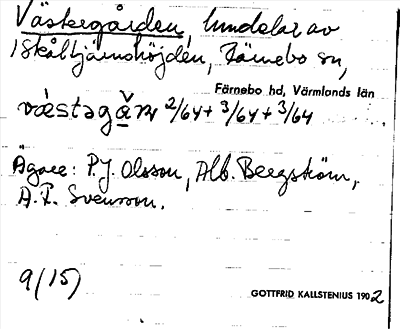 Västegården, hundelar av
1 Skåltjärnshöjden, Färnebo sn,
Färnebo hd, Värmlands län
2/64 + 3/64 + 3/64
Ägare: P.J. Olsson, Alb. Bergström,
A. P. Svensson.
9/15)
GOTTFRID KALLSTENIUS 1902